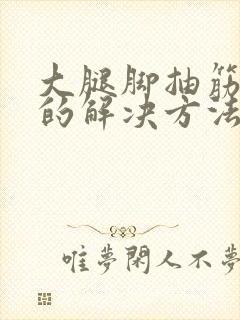 大腿脚抽筋
的解决方法
唯夢閑人不夢